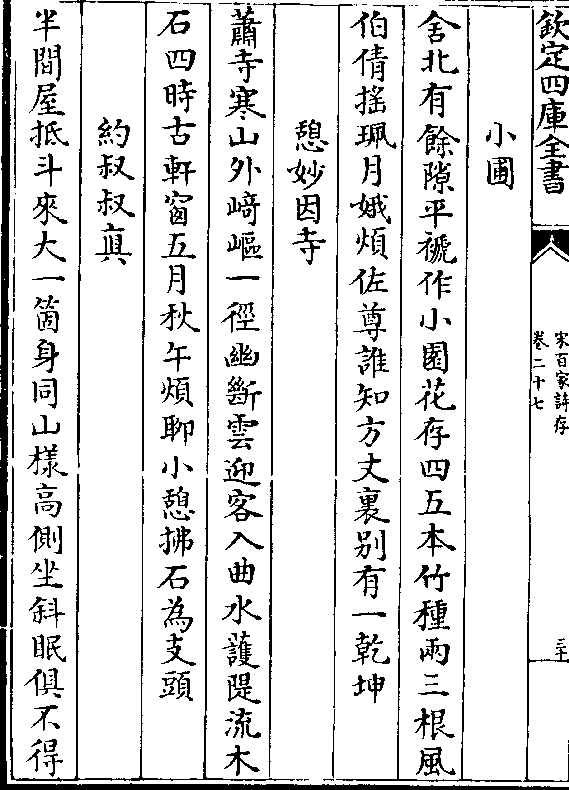 欽定四庫全書
宋百家詩存
卷二十七
三十
小圃
舍北有餘隙平褫作小園花存四五本竹種兩三根風
伯倩搖珮月娥煩佐尊誰知方丈裏别有一乾坤
憩妙因寺
蕭寺寒山外﨑嶇一徑幽斷雲迎客入曲水護隄流木
石四時古軒窗五月秋午煩聊小憩拂石為支頭
約叔叔真
半間屋抵斗來大一箇身同山樣高側坐斜眠俱不得